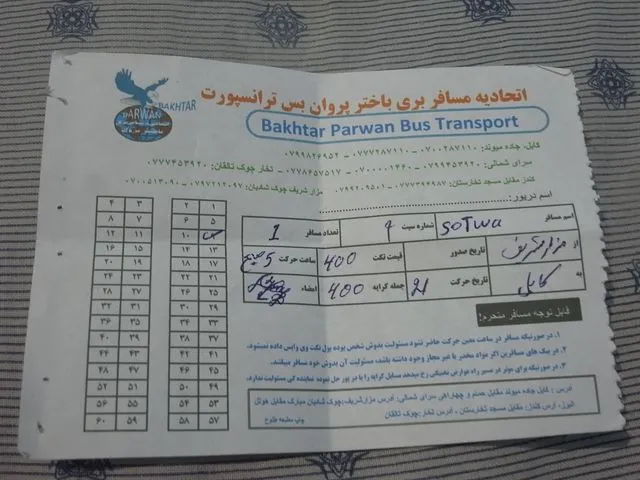 BAKHTAR
PARWAN
اتحادیه مسافر بری باختر پروان بس ترانسپورت
Bakhtar Parwan Bus Transport
کابل، جاده میوند: ۰۷۰۰۲۸۷۱۱۰ - ۰۷۷۷۲۸۷۱۱۰ - ۰۷۹۹۸۲۶۹۵۲
سرای شمالی: ۰۷۹۹۴۵۳۹۲۰ - ۰۷۰۰۰۰۱۴۶۰ - ۰۷۷۸۶۵۷۵۱۷ تخار چوک تالقان: ۰۷۷۷۴۵۳۹۲۰
کندز مقابل مسجد تخارستان: ۰۷۷۷۳۹۴۹۸۷ - ۰۷۹۹۲۰۹۵۰۱ مزار شریف چوک شادیان: ۰۷۹۷۲۱۲۰۹۷ - ۰۷۰۰۵۱۳۰۹۰
اسم دریور:
اسم مسافر soTwa شماره سیت ۹ تعداد مسافر 1
از مزارشریف تاریخ صدور قیمت تکت ۴۰۰ ساعت حرکت 5 صبح
به کابل تاریخ حرکت 21 جمله کرایه ۴۰۰ امضاء
قابل توجه مسافر محترم!
۱. در صورتیکه مسافر در ساعت معین حرکت حاضر نشود مسئولیت بدوش شخص بوده پول تکت وی واپس داده نمیشود.
۲. در بیک های مسافرین اگر مواد مخدر یا غیر مجاز وجود داشته باشد، مسئولیت آن بدوش خود مسافر میباشد.
۳. در صورتیکه برای موتر در مسیر راه عوارض تخنیکی رخ میدهد مسایل کرایه را با دریور حل نموده نماینده گی مسئولیت ندارد.
آدرس: کابل جاده میوند مقابل حمام و چهاراهی سرای شمالی، آدرس مزارشریف: چوک شادیان مبارک مقابل هوتل
البرز، آدرس کندز: مقابل مسجد تخارستان، آدرس تخار: چوک تالقان
چاپ مطبعه طلوع
۱ ۲ ۳ ۴
۵ ۶ ۷ ۸
۱۰ ۱۱ ۱۲
۱۳ ۱۴ ۱۵ ۱۶
۱۷ ۱۸ ۱۹ ۲۰
۲۱ ۲۲ ۲۳ ۲۴
۲۵ ۲۶ ۲۷ ۲۸
۲۹ ۳۰ ۳۱ ۳۲
۳۳ ۳۴ ۳۵ ۳۶
۳۷ ۳۸ ۳۹ ۴۰
۴۱ ۴۲ ۴۳ ۴۴
۴۵ ۴۶ ۴۷ ۴۸
۴۹ ۵۰ ۵۱ ۵۲
۵۳ ۵۴ ۵۵ ۵۶
۵۷ ۵۸ ۵۹ ۶۰